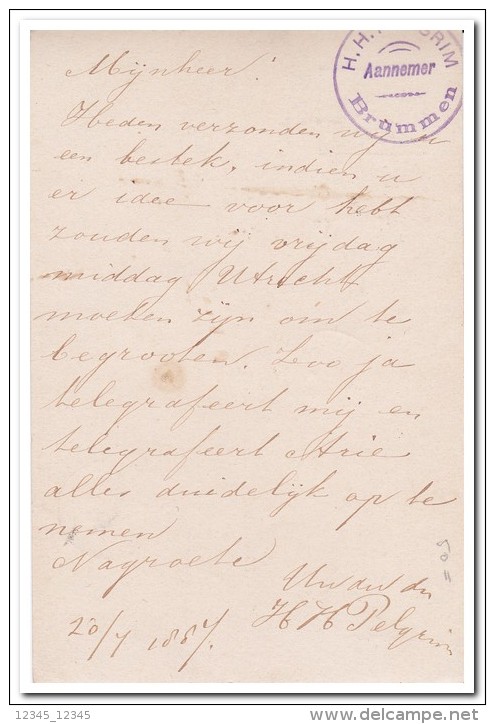 H. H. PELGRIM
Aannemer
Brummen
Mijnheer!
Heden verzonden wij u
een bestek, indien u
er idee voor hebt
zouden wij vrijdag
middag Utrecht
moeten zijn om te
begrooten. Zoo ja
telegrafeert mij en
telegrafeert Arie
alles duidelijk op te
nemen
Nagroete
Uw dw dn
H H Pelgrim
20/7 1887.
12345_12345
www.delcampe.net